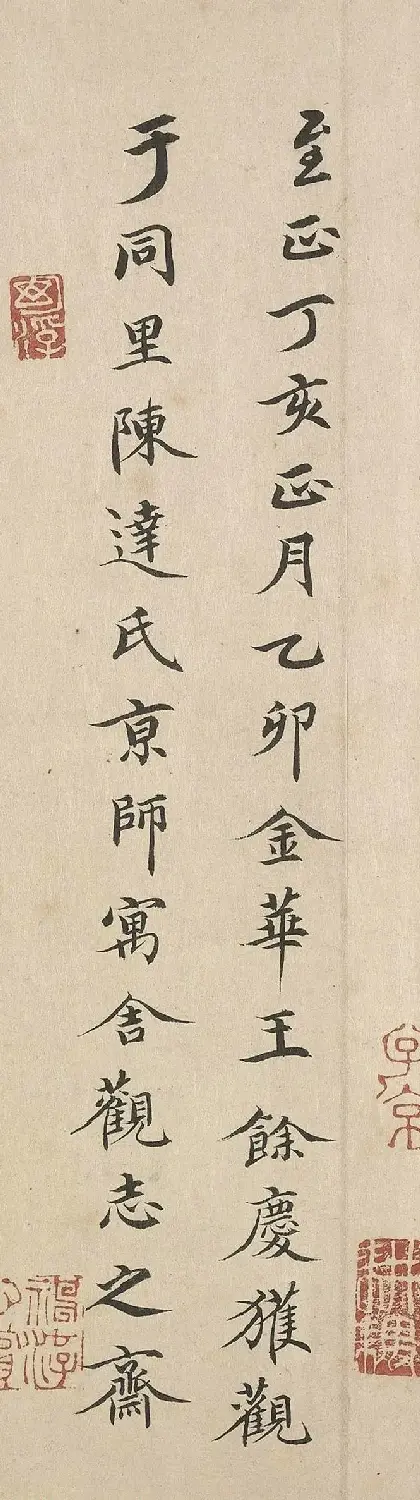 至正丁亥正月乙卯金華王餘慶獲觀
于同里陳達氏京師寓舍觀志之齋